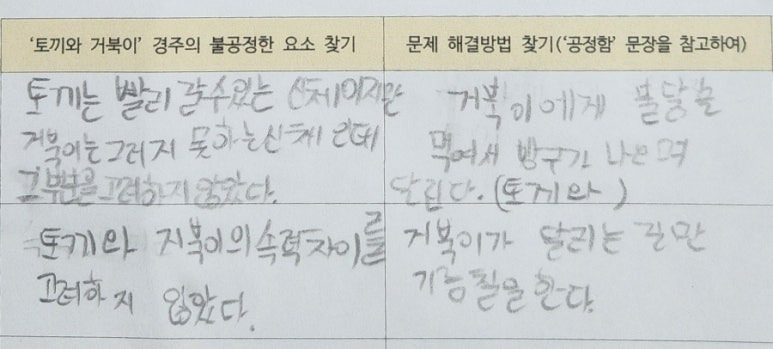 '토끼와 거북이' 경주의 불공정한 요소 찾기
문제 해결방법 찾기('공정함' 문장을 참고하여)
토끼는 빨리 갈수있는 신체이지만
거북이는그러지 못하는신체 인데
그 부분을고려하지 않았다.
거북이에게 불닭을
먹여서 방구가 나오며
달린다.(토게와)
토게와 지북이의 속력차이를
고려하지 않았다.
거북이가 달리는 길만
기름칠을 한다.